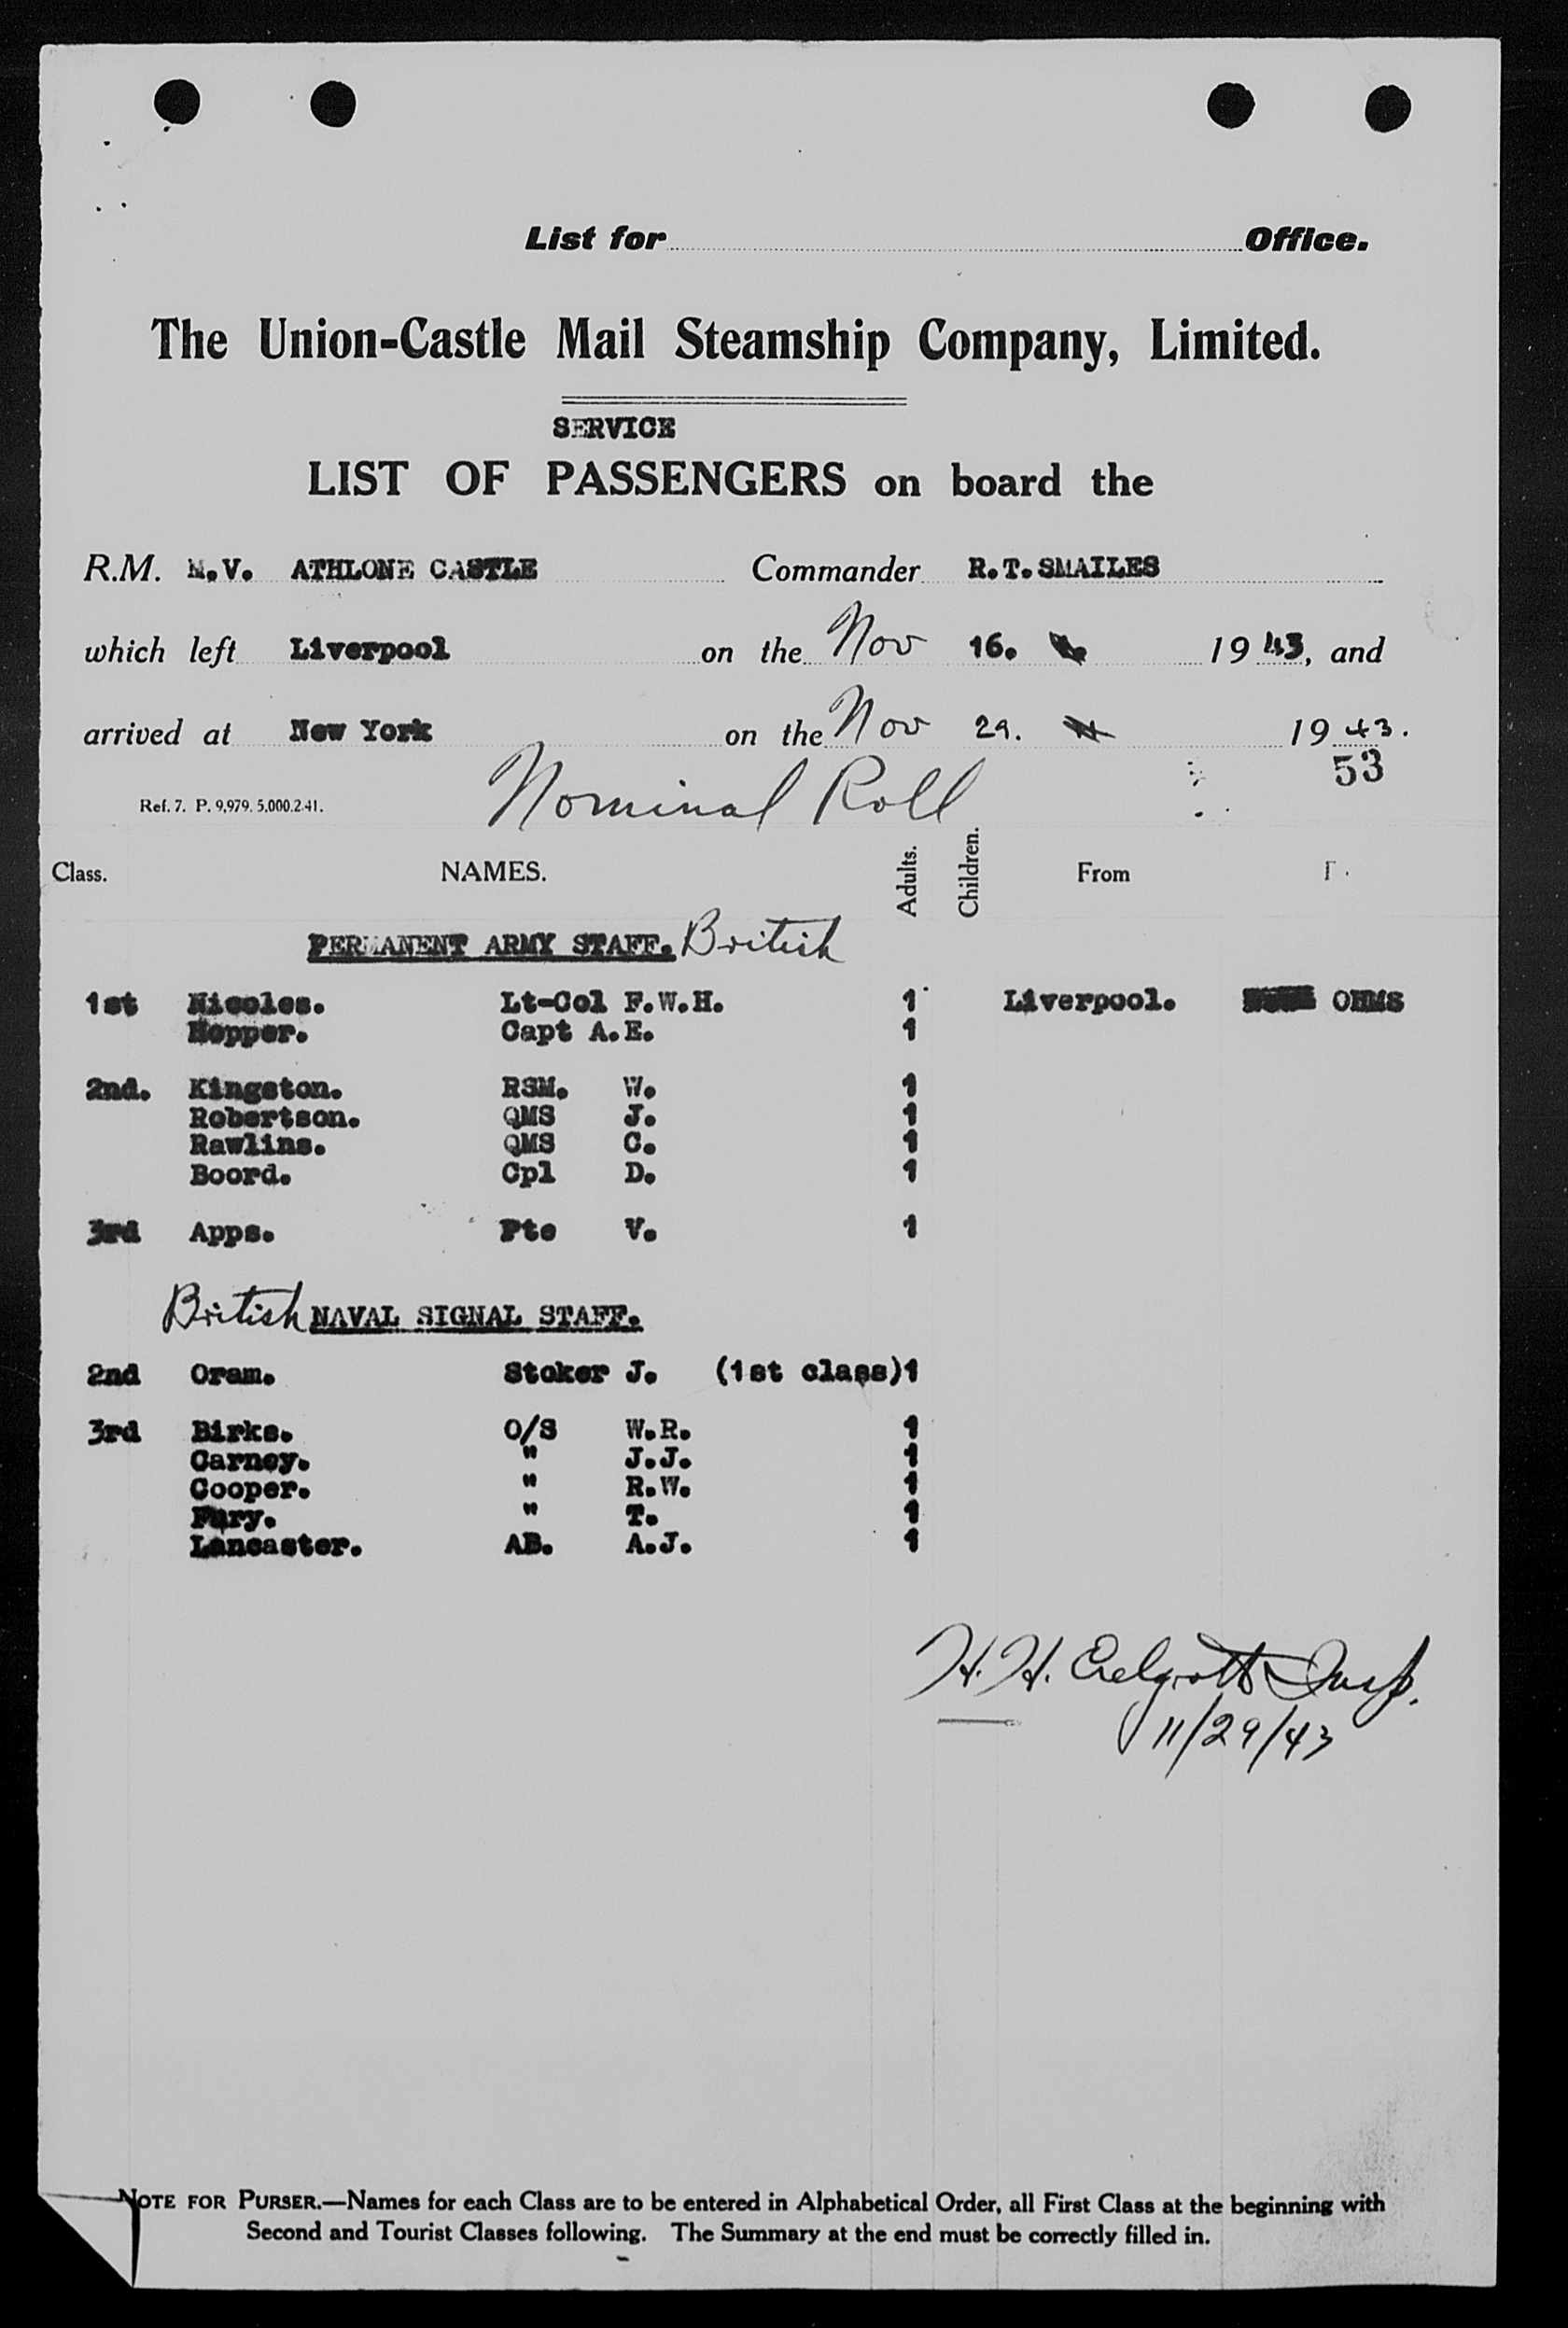 List for Office.
The Union-Castle Mail Steamship Company, Limited.
SERVICE
LIST OF PASSENGERS on board the
R.M. M.V. ATHLONE CASTLE Commander R.T.SMAILES
which left Liverpool on the Nov 16. 1943, and
arrived at New York on the Nov 29. 1943.
53
Ref. 7. P. 9,979. 5,000.2.41. Nominal Roll
Class. NAMES. Adults. Children. From
PERMANENT ARMY STAFF. British
1st Nicoles. Lt-Col F.W.H. 1 Liverpool. OHMS
Hopper. Capt A.E. 1
2nd. Kingston. RSM. W. 1
Robertson. QMS J. 1
Rawlins. QMS C. 1
Boord. Cpl D. 1
3rd Apps. Pte V. 1
British NAVAL SIGNAL STAFF.
2nd Oram. Stoker J. (1st class)1
3rd Birks. O/S W.R. 1
Carney. " J.J. 1
Cooper. " R.W. 1
Fury. " T. 1
Lancaster. AB. A.J. 1
H. H. Insp.
11/29/43
NOTE FOR PURSER.—Names for each Class are to be entered in Alphabetical Order, all First Class at the beginning with
Second and Tourist Classes following. The Summary at the end must be correctly filled in.